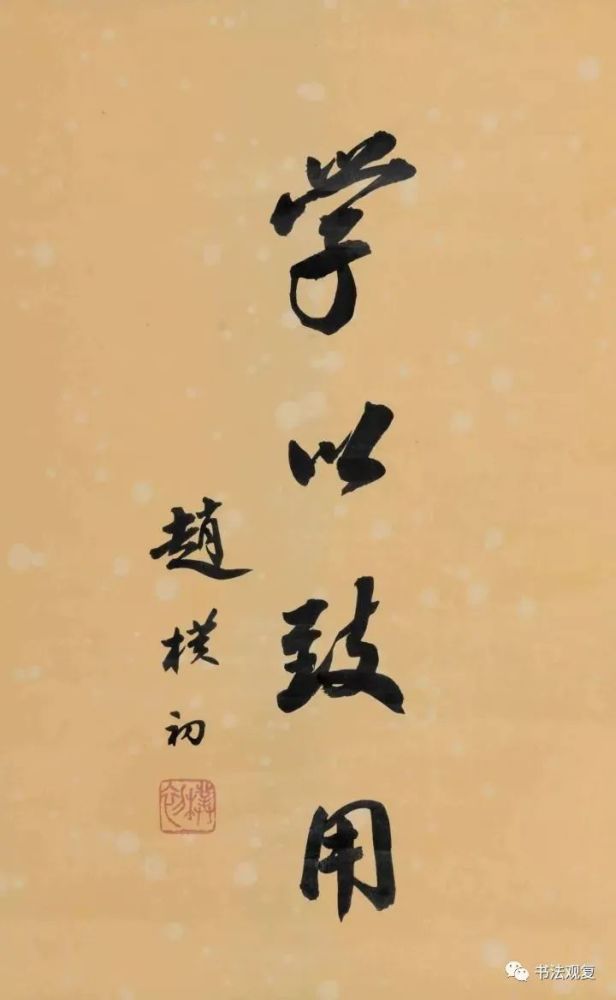 学以致用
趙樸初
樸初
书法观复